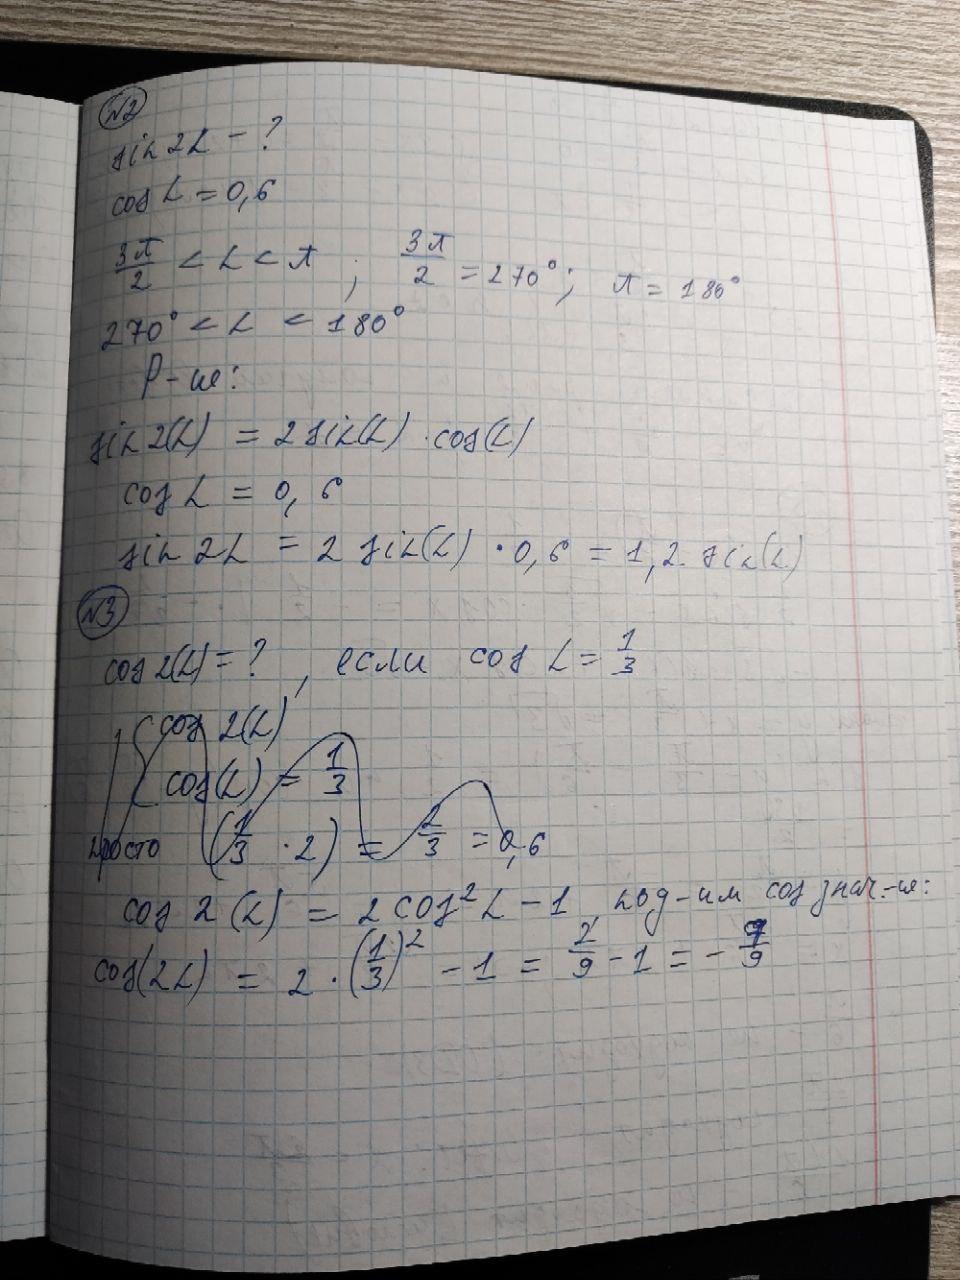 №2
sin 2α - ?
cos α = 0,6
3π/2 < α < π ; 3π/2 = 270°; π = 180°
270° < α < 180°
Р-ие:
sin 2(α) = 2 sin(α) · cos(α)
cos α = 0,6
sin 2α = 2 sin(α) · 0,6 = 1,2 · sin(α)
№3
cos 2(α) = ? , если cos α = 1/3
cos 2(α)
cos(α) = 1/3
просто (1/3 · 2) = 2/3 = 0,6
cos 2(α) = 2 cos² α - 1, под-им cos знач-ие:
cos(2α) = 2 · (1/3)² - 1 = 2/9 - 1 = - 7/9